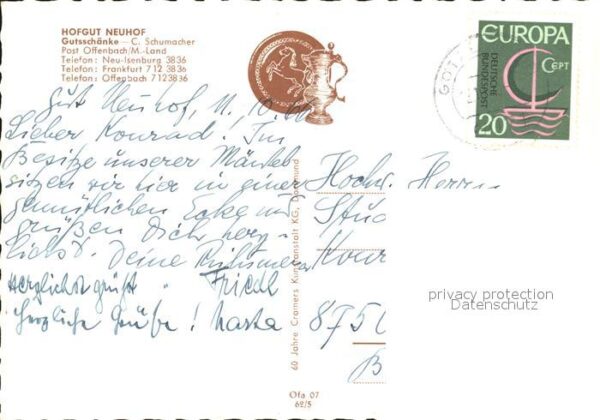 HOFGUT NEUHOF
Gutsschänke – C. Schumacher
Post Offenbach/M.-Land
Telefon: Neu-Isenburg 3836
Telefon: Frankfurt 712 3836
Telefon: Offenbach 7123836
Gut Neuhof, 11.10.66
Lieber Konrad. Im
Besitze unserer Mäntel
sitzen wir hier in einer
gemütlichen Ecke und
grüßen Dich herz-
lichst. Deine
herzlichst grüßt Friedl
Herzliche Grüße!
60 Jahre Cramers Kunstanstalt KG, Dortmund
Hochw. Herrn
Stud
Konr
875
B
Ofa 07
62/5
EUROPA
CEPT
DEUTSCHE
BUNDESPOST
20
privacy protection
Datenschutz